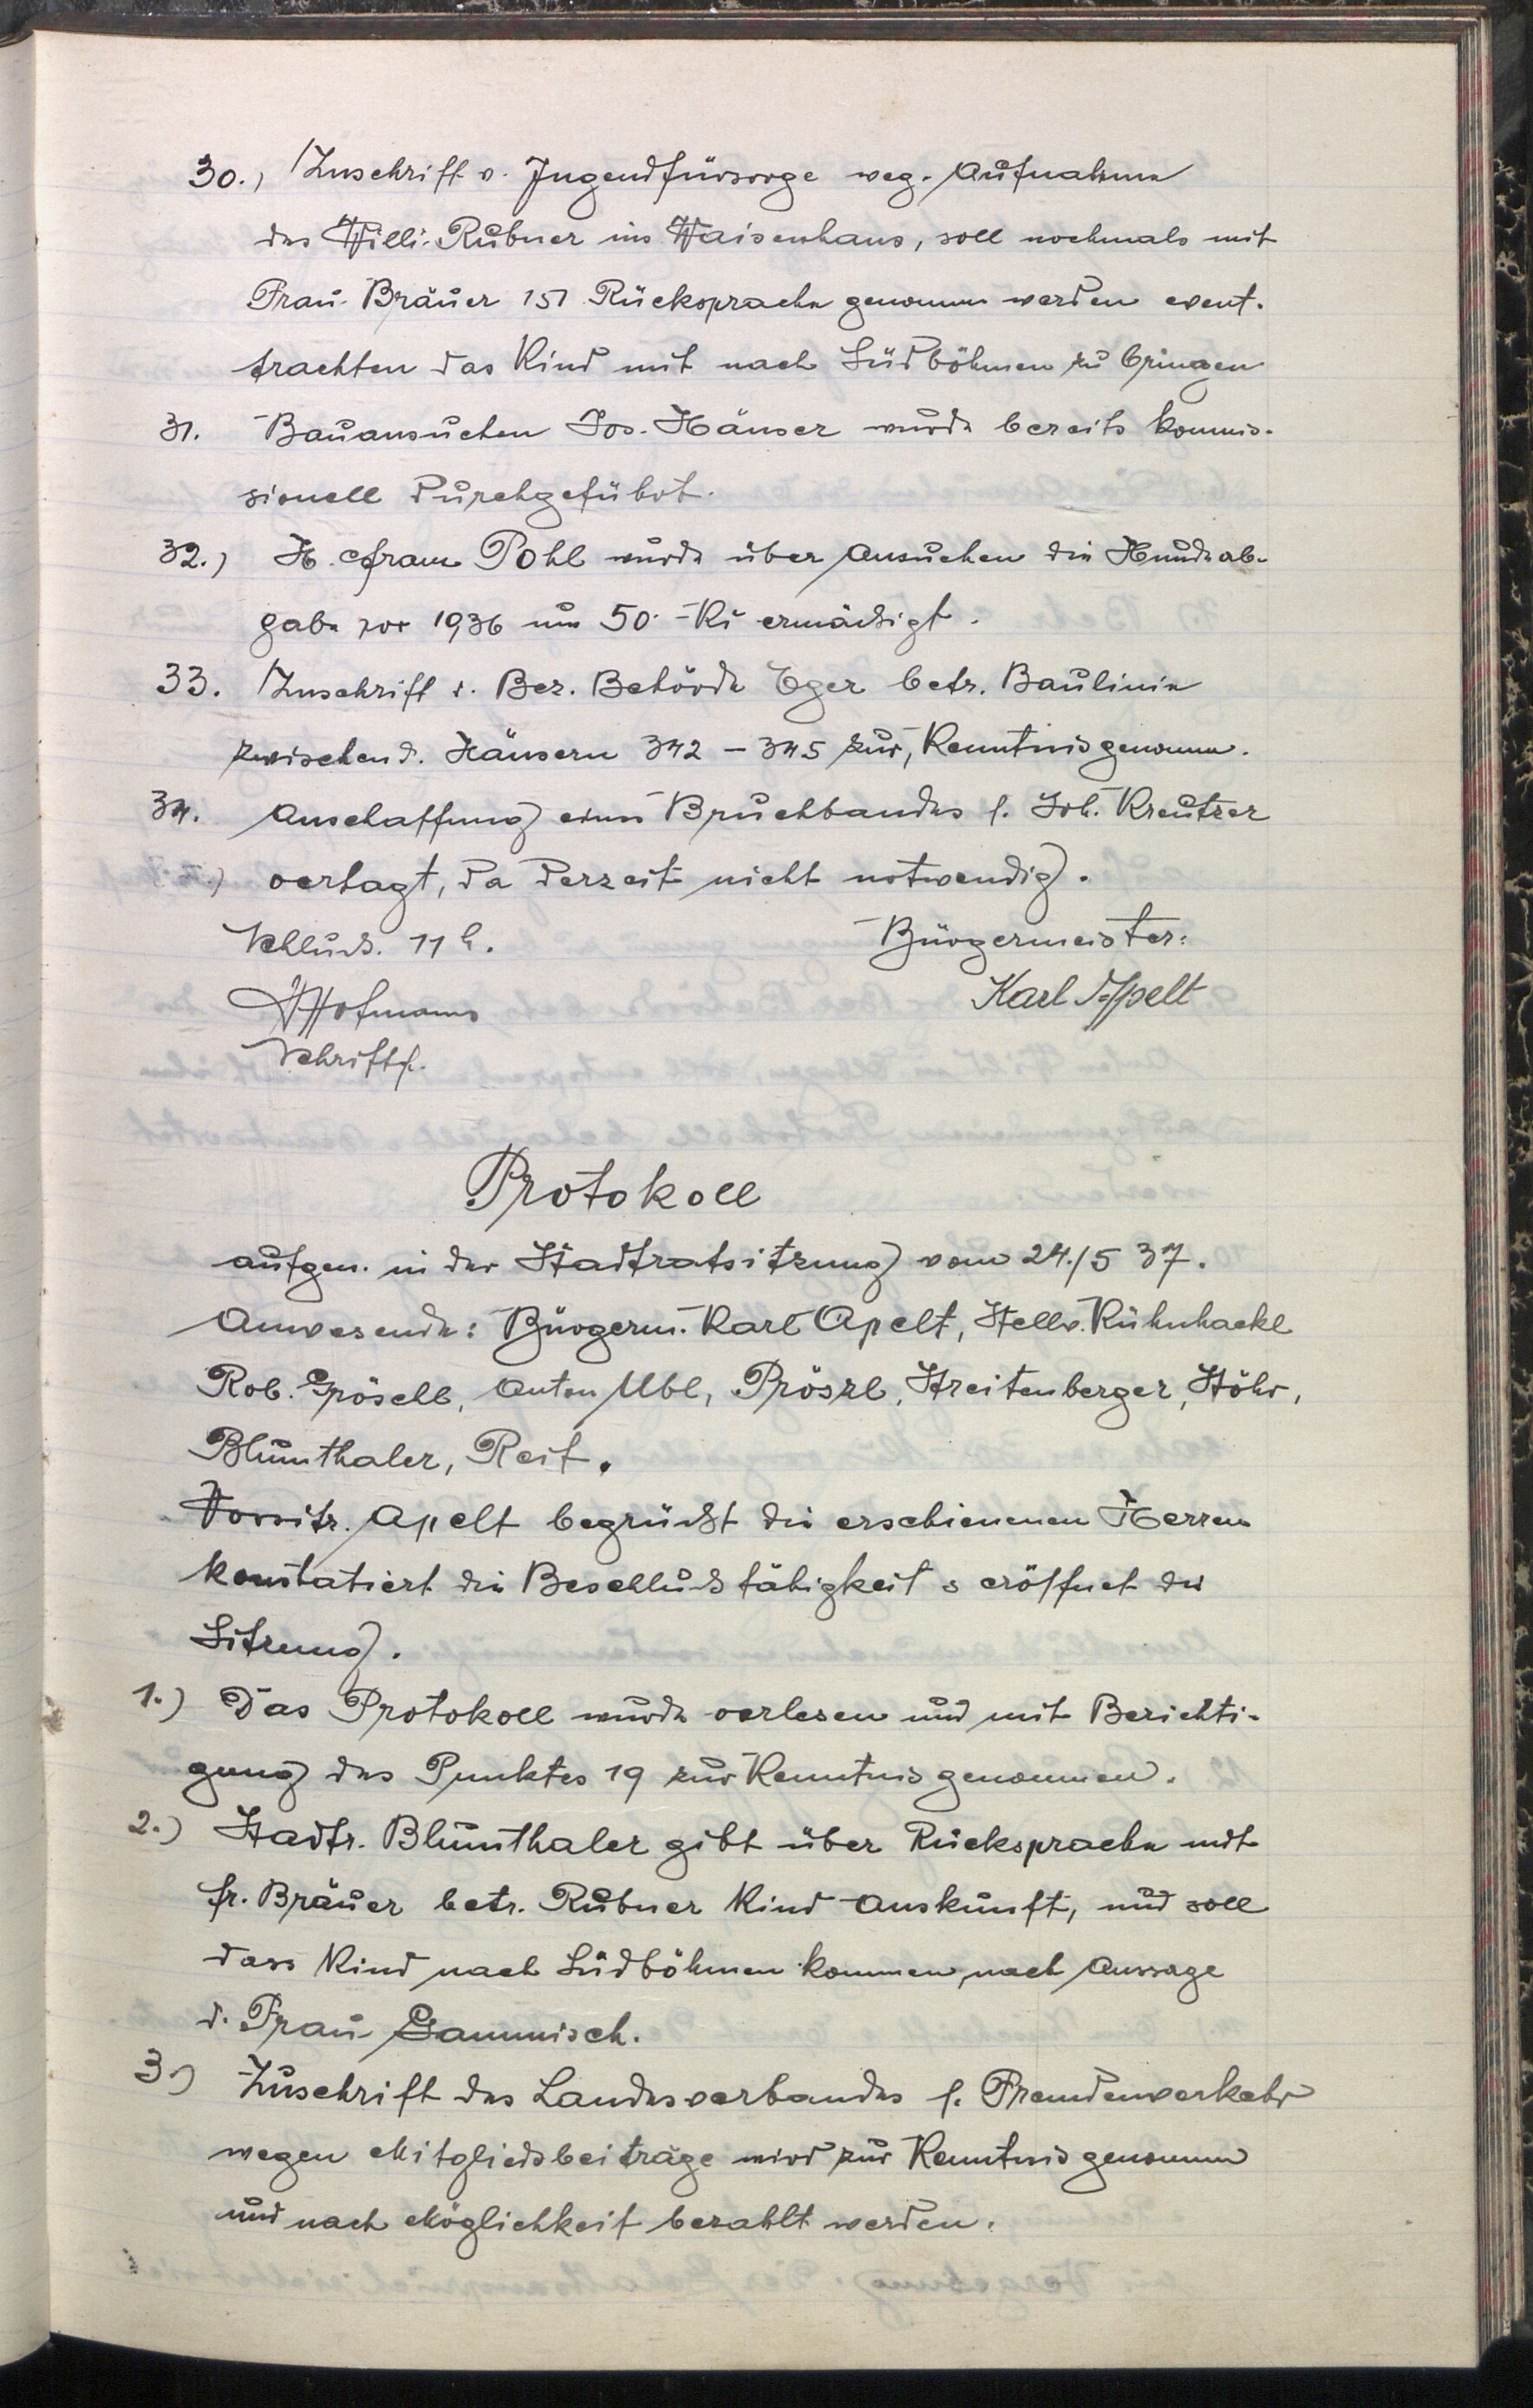 30.) Zuschrift v. Jugendfürsorge weg. Aufnahme
des Willi Rubner ins Waisenhaus, soll nochmals mit
Frau Bräuer 151 Rücksprache genommen werden event.
trachten das Kind mit nach Südböhmen zu bringen
31. Bauansuchen Jos. Häuser wurde bereits kommis-
sionell durchgeführt.
32.) H. Franz Pohl wurde über Ansuchen die Hundeab-
gabe pro 1936 um 50.- Kč ermäßigt.
33. Zuschrift d. Bez. Behörde Eger betr. Baulinie
zwischen d. Häusern 342 - 345 zur, Kenntnis genommen.
34. Anschaffung eines Bruchbandes f. Joh. Kreutzer
vertagt, da derzeit nicht notwendig.
Schluß. 11 h. Bürgermeister:
Hofmann Karl Apelt
Schriftf.
Protokoll
aufgen. in der Stadtratsitzung vom 24./5 37.
Anwesende: Bürgerm. Karl Apelt, Stellv. Kühnhackl
Rob. Gröschl, Anton Ubl, Pröszl, Streitenberger, Stöhr,
Blumthaler, Reif.
Vorsitz. Apelt begrüßt die erschienenen Herren
konstatiert die Beschlußfähigkeit & eröffnet die
Sitzung.
1.) Das Protokoll wurde verlesen und mit Berichti-
gung des Punktes 19 zur Kenntnis genommen.
2.) Stadtr. Blumthaler gibt über Rücksprache mit
Fr. Bräuer betr. Rubner Kind Auskunft, und soll
dass Kind nach Südböhmen kommen, nach Aussage
d. Frau Gammisch.
3.) Zuschrift des Landesverbandes f. Fremdenverkehr
wegen Mitgliedsbeiträge wird zur Kenntnis genommen
und nach Möglichkeit bezahlt werden.